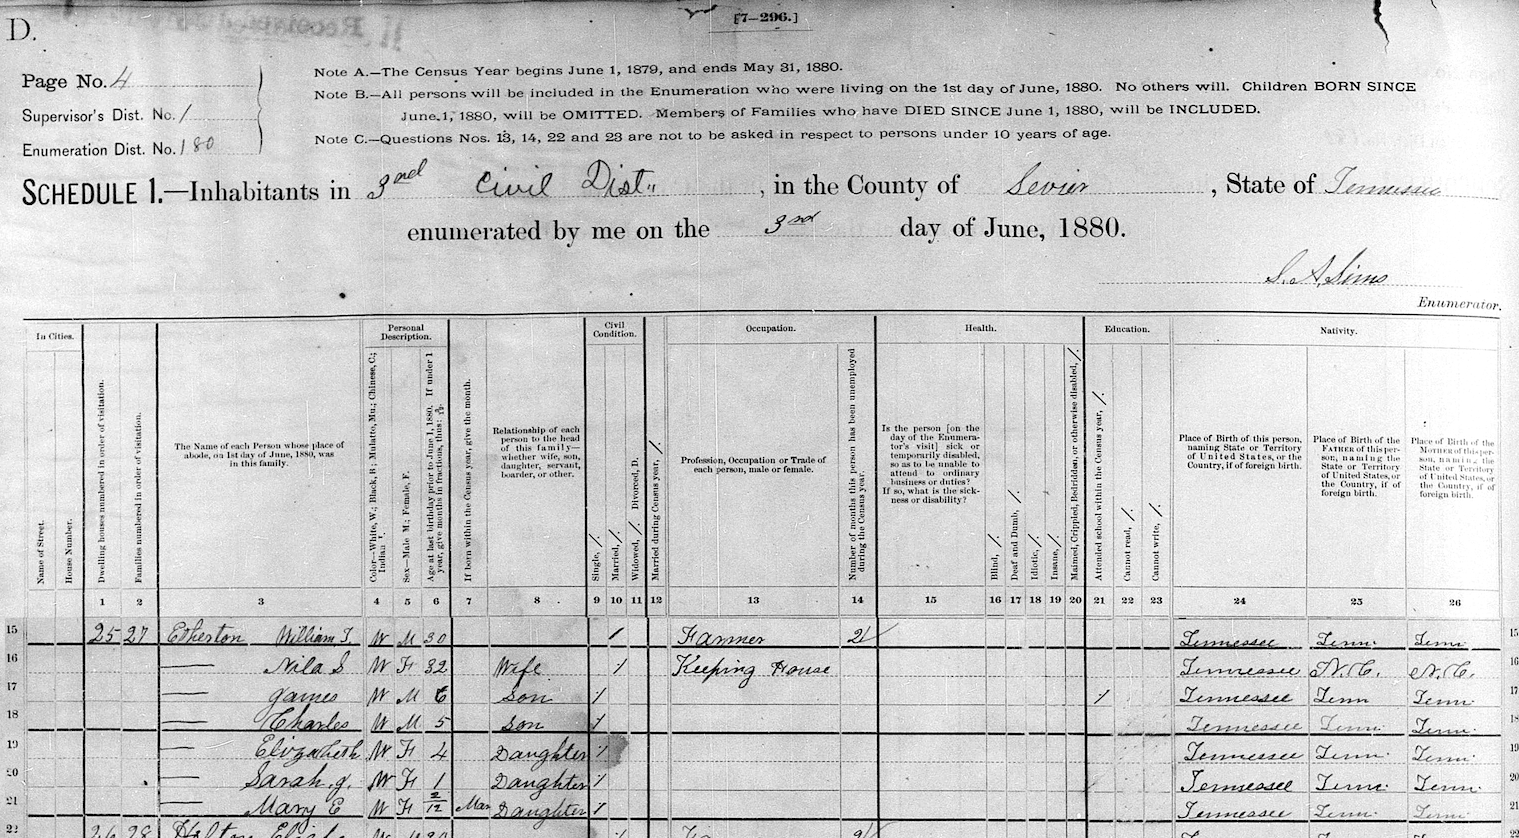 D.
[7–296.]
Page No. 4
Supervisor's Dist. No. 1
Enumeration Dist. No. 180
Note A.—The Census Year begins June 1, 1879, and ends May 31, 1880.
Note B.—All persons will be included in the Enumeration who were living on the 1st day of June, 1880. No others will. Children BORN SINCE
June 1, 1880, will be OMITTED. Members of Families who have DIED SINCE June 1, 1880, will be INCLUDED.
Note C.—Questions Nos. 13, 14, 22 and 23 are not to be asked in respect to persons under 10 years of age.
SCHEDULE 1.—Inhabitants in 3rd Civil Dist., in the County of Sevier, State of Tennessee
enumerated by me on the 3rd day of June, 1880.
S. A. Sims
Enumerator.
In Cities. Personal Description. Civil Condition. Occupation. Health. Education. Nativity.
Name of Street.
House Number.
Dwelling houses numbered in order of visitation.
Families numbered in order of visitation.
The Name of each Person whose place of
abode, on 1st day of June, 1880, was
in this family.
Color—White, W.; Black, B.; Mulatto, Mu.; Chinese, C.;
Indian, I.
Sex—Male M; Female, F.
Age at last birthday prior to June 1, 1880. If under 1
year, give months in fractions, thus: 3/12
If born within the Census year, give the month.
Relationship of each
person to the head
of this family—
whether wife, son,
daughter, servant,
boarder, or other.
Single, /.
Married, /.
Widowed, /. Divorced, D.
Married during Census year, /.
Profession, Occupation or Trade of
each person, male or female.
Number of months this person has been unemployed
during the Census year.
Is the person [on the
day of the Enumera-
tor's visit] sick or
temporarily disabled,
so as to be unable to
attend to ordinary
business or duties?
If so, what is the sick-
ness or disability?
Blind, /.
Deaf and Dumb, /.
Idiotic, /.
Insane, /.
Maimed, Crippled, Bedridden, or otherwise disabled, /.
Attended school within the Census year, /.
Cannot read, /.
Cannot write, /.
Place of Birth of this person,
naming State or Territory
of United States, or the
Country, if of foreign birth.
Place of Birth of the
FATHER of this per-
son, naming the
State or Territory
of United States, or
the Country, if of
foreign birth.
Place of Birth of the
MOTHER of this per-
son, naming the
State or Territory
of United States, or
the Country, if of
foreign birth.
1 2 3 4 5 6 7 8 9 10 11 12 13 14 15 16 17 18 19 20 21 22 23 24 25 26
15 25 27 Etherton William T. W M 30 / Farmer 2 Tennessee Tenn. Tenn. 15
16 — Nila S W F 32 Wife / Keeping House Tennessee N.C. N.C. 16
17 — James W M 6 Son / / Tennessee Tenn Tenn. 17
18 — Charles W M 5 Son / Tennessee Tenn. Tenn. 18
19 — Elizabeth W F 4 Daughter / Tennessee Tenn. Tenn. 19
20 — Sarah J. W F 1 Daughter / Tennessee Tenn. Tenn. 20
21 — Mary E W F 2/12 Mar Daughter / Tennessee Tenn. Tenn. 21
22 26 28